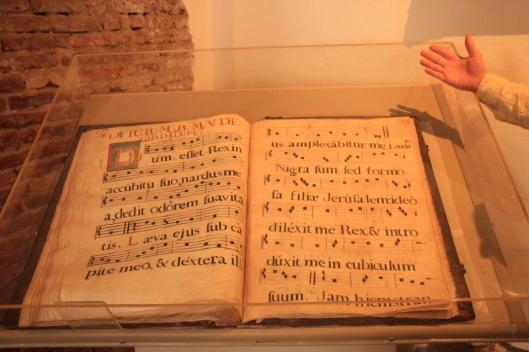 OFICIUM. B. M. V. DE
GUADALUPE
Dum esset Rex in
accúbitu suo, nardus me
a dedit odôrem suavita
tis. Læva ejus sub ca
pite meo, & déxtera ill
us amplexábitur me. Laudate
Nigra sum sed formo
sa filiæ Jerúsalem ideò
diléxit me Rex, & intro
dúxit me in cubículum
suum. Jam hiems tran